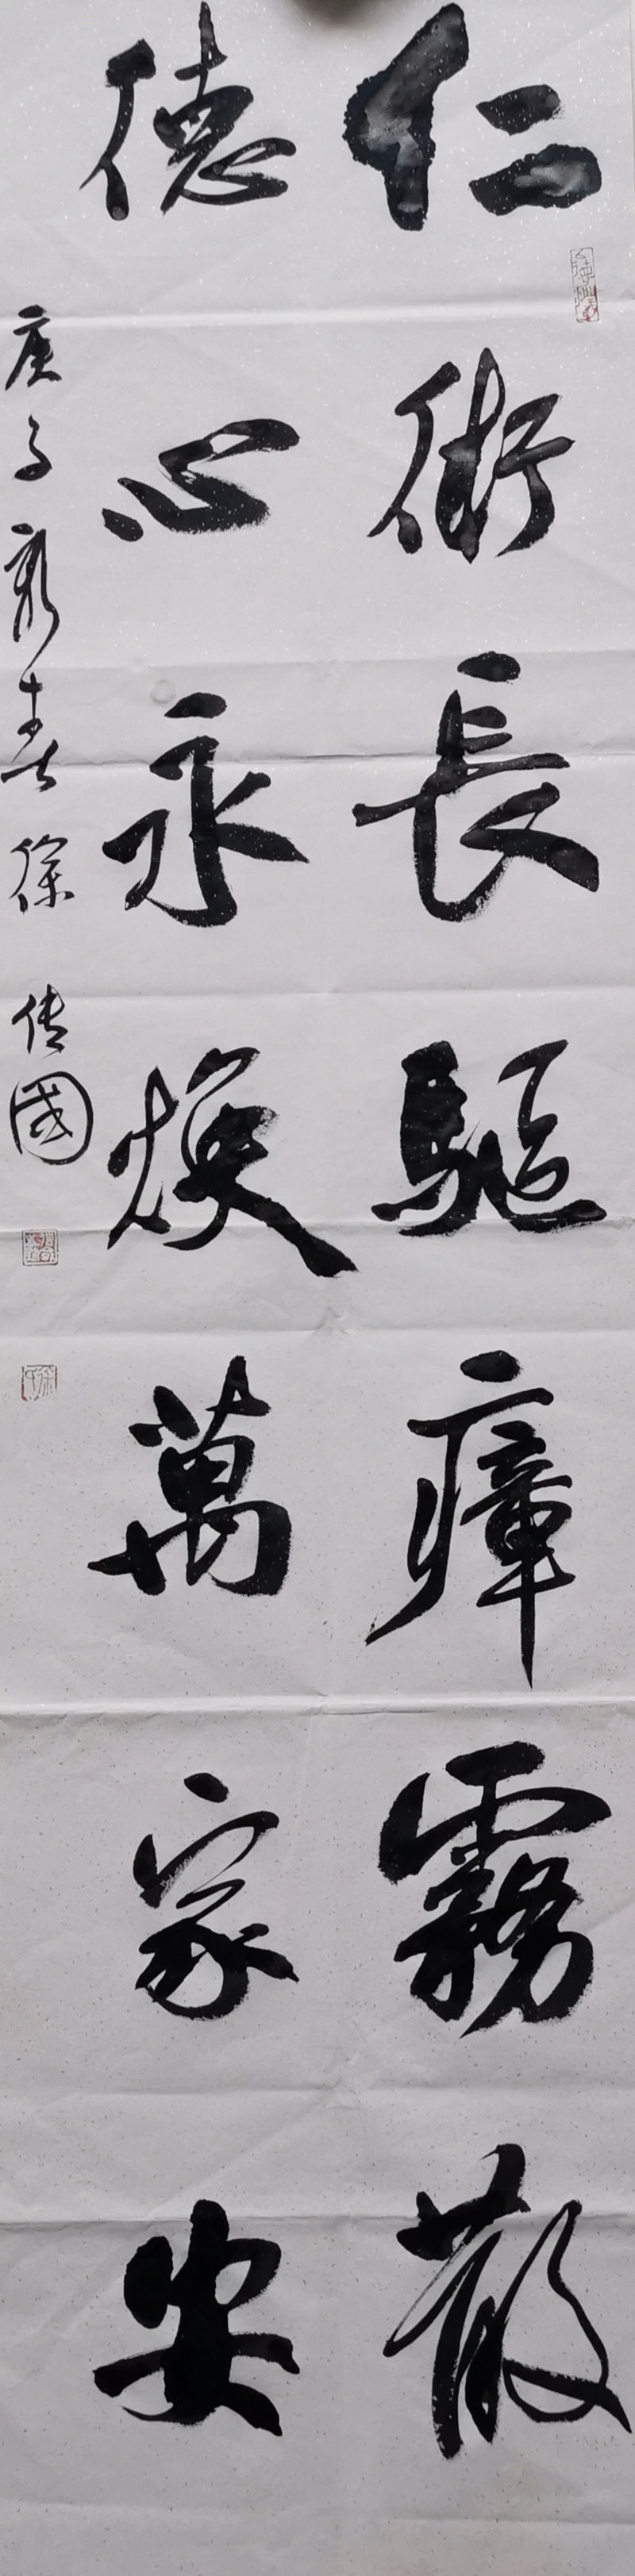 仁術長驅瘴霧散
德心永煥萬家安
庚子新春徐传國